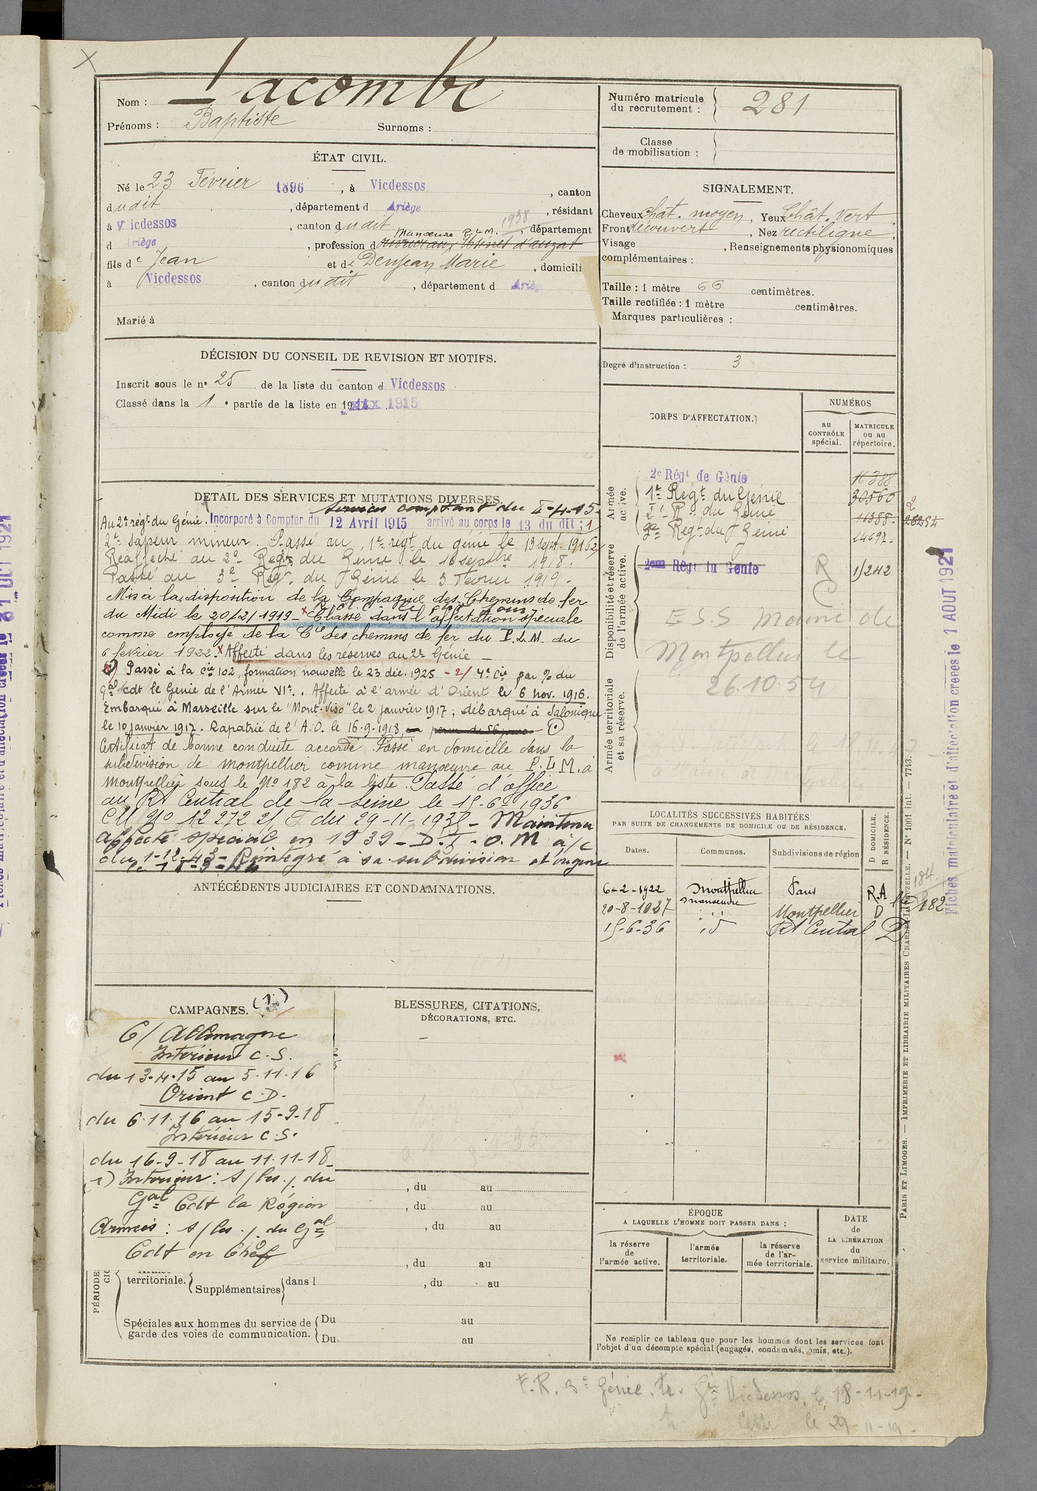 Nom : Lacombe
Prénoms : Baptiste Surnoms :
Numéro matricule du recrutement : 281
Classe de mobilisation :
ÉTAT CIVIL.
Né le 23 Février 1896, à Vicdessos, canton
dudit, département d Ariège, résidant
à Vicdessos, canton dudit 1938, département
Manœuvre P.L.M.
d Ariège, profession d
fils de Jean et de Denjean Marie, domicili
à Vicdessos, canton dudit, département d Ariège
Marié à
SIGNALEMENT.
Cheveux chât. moyen, Yeux Chât. vert
Front découvert, Nez rectiligne,
Visage , Renseignements physionomiques
complémentaires :
Taille : 1 mètre 66 centimètres.
Taille rectifiée : 1 mètre centimètres.
Marques particulières :
Degré d'instruction : 3
DÉCISION DU CONSEIL DE REVISION ET MOTIFS.
Inscrit sous le n° 25 de la liste du canton d Vicdessos
Classé dans la 1e partie de la liste en 1915
CORPS D'AFFECTATION.
NUMÉROS
au CONTRÔLE spécial.
MATRICULE ou au répertoire.
Armée active.
2e Régt de Génie 11388
1er Regt du Génie 20560
2e Rgt du Génie 11388
3e Regt du Génie 24692
Disponibilité et réserve de l'armée active.
2eme Régt du Genie 1/242
E.S.S Mobilé de
Montpellier le
26.10.54
Armée territoriale et sa réserve.
DÉTAIL DES SERVICES ET MUTATIONS DIVERSES.
services comptant du
Au 2e régt du Génie. Incorporé à Compter du 12 Avril 1915 arrivé au corps le 13 du dit ; 1
2e sapeur mineur. Passé au 1er régt du génie le 13 sept 1916
Réaffecté au 2e Regt du Génie le 16 septbre 1918.
Passé au 3e Regt du Génie le 3 Fevrier 1919.
Mis à la disposition de la Compagnie des Chemins de fer
du Midi le 20/2/1919 Classé dans l'affectation spéciale
comme employé de la Cie des chemins de fer du P.L.M. du
6 fevrier 1922. Affecté dans les réserves au 2e Génie
Passé à la Cie 102, formation nouvelle le 23 déc. 1925 - 2/ 4e Cie par % du
Gal Cdt le Génie de l'Armée VIe. Affecté à l'armée d'Orient le 6 nov. 1916.
Embarqué à Marseille sur le "Mont-Viso" le 2 janvier 1917, débarqué à Salonique
le 10 janvier 1917. Rapatrié de l'A.O. le 16-9-1918
Certificat de bonne conduite accordé. Passé en domicile dans la
subdivision de Montpellier comme manœuvre au P.L.M. à
Montpellier sous le No 182 à la liste. Passé d'office
au Rt Central de la Seine le 15-6-1936
CM No 12272 2/ du 29-11-1937 - Maintenu
affecté spécial en 1939 - D.T.O.M à/c
du 1-12-43 - Réintégré à sa subdivision d'origine
le 18-3-44
ANTÉCÉDENTS JUDICIAIRES ET CONDAMNATIONS.
LOCALITÉS SUCCESSIVES HABITÉES
PAR SUITE DE CHANGEMENTS DE DOMICILE OU DE RÉSIDENCE.
Dates. Communes. Subdivisions de région D DOMICILE, R RÉSIDENCE.
6-2-1922 Montpellier Paris R.A
manœuvre
20-8-1927 id Montpellier D No 182
15-6-36 id Rt Central D
CAMPAGNES. (1)
C/ Allemagne
Intérieur C.S.
du 13-4-15 au 5-11-16
Orient C.D.
du 6-11-16 au 15-9-18
Intérieur C.S.
du 16-9-18 au 11-11-18
1) Intérieur : s/les/ du
Gal Cdt la Région
Armées : s/les/ du Gal
Cdt en Chef
BLESSURES, CITATIONS,
DÉCORATIONS, ETC.
, du au
, du au
, du au
, du au
territoriale. Supplémentaires dans l , du au
Spéciales aux hommes du service de garde des voies de communication. Du au
Du au
ÉPOQUE
A LAQUELLE L'HOMME DOIT PASSER DANS :
la réserve de l'armée active.
l'armée territoriale.
la réserve de l'armée territoriale.
DATE DE LA LIBÉRATION du service militaire.
Ne remplir ce tableau que pour les hommes dont les services font
l'objet d'un décompte spécial (engagés, condamnés, omis, etc.).
F.R. 3e Génie. Gie Vicdessos, le 18-11-19
le 29-11-19
Fiches matriculaire et d'affectation créées le 1 AOUT 1921